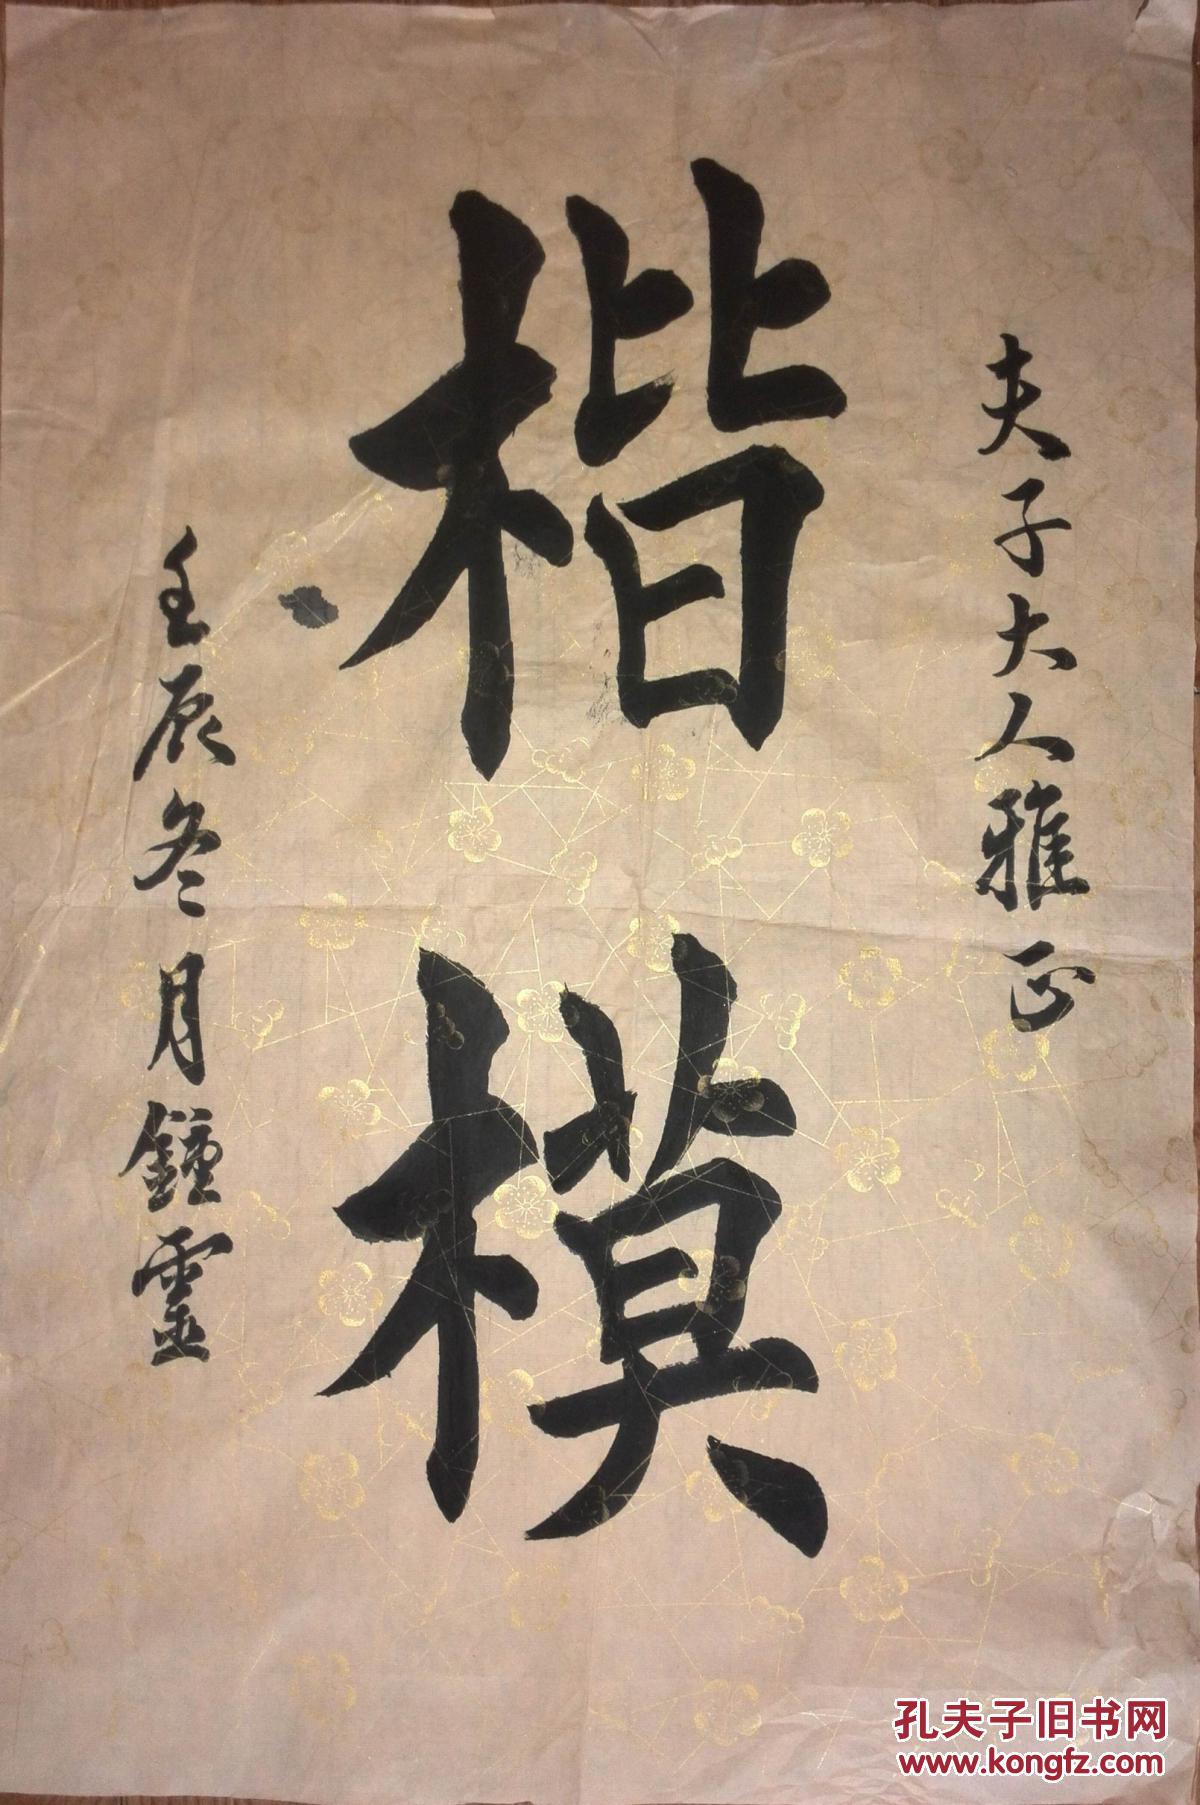 夫子大人雅正
楷模
壬辰冬月鐘靈
孔夫子旧书网
www.kongfz.com